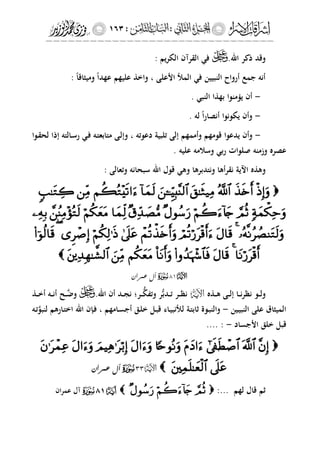 إشراقات الإسراء الجزء الثاني : اللقاء الثامن : ١٦٣
وقد ذكر الله ﷻ في القرآن الكريم :
أنه جمع أرواح النبيين في الملأ الأعلى ، واخذ عليهم عهداً وميثاقاً :
– أن يؤمنوا بهذا النبي .
– وأن يكونوا أنصاراً له .
– وأن يدعوا قومهم وأممهم إلى تلبية دعوته ، وإلى متابعته في رسالته إذا لحقوا
عصره وزمنه صلوات ربي وسلامه عليه .
وهذه الآية نقرأها ونتدبرها وهي قول الله سبحانه وتعالى :
﴿ وَإِذْ أَخَذَ ٱللَّهُ مِيثَـٰقَ ٱلنَّبِيِّـۧنَ لَمَآ ءَاتَيْتُكُم مِّن كِتَـٰبٍ
وَحِكْمَةٍ ثُمَّ جَآءَكُمْ رَسُولٌ مُّصَدِّقٌ لِّمَا مَعَكُمْ لَتُؤْمِنُنَّ بِهِۦ
وَلَتَنصُرُنَّهُۥ ۚ قَالَ ءَأَقْرَرْتُمْ وَأَخَذْتُمْ عَلَىٰ ذَٰلِكُمْ إِصْرِى ۖ قَالُوٓا۟
أَقْرَرْنَا ۚ قَالَ فَٱشْهَدُوا۟ وَأَنَا۠ مَعَكُم مِّنَ ٱلشَّـٰهِدِينَ ﴾
الآية ٨١ سورة آل عمران
ولو نظرنا إلى هذه الآية نظر تدبُّر وتفكُّر؛ نجد أن الله ﷻ وضَّح أنه أخذ
الميثاق على النبيين – والنبوة ثابتة للأنبياء قبل خلق أجسامهم ، فإن الله اختارهم لنبوَّته
قبل خلق الأجساد – .... :
﴿ إِنَّ ٱللَّهَ ٱصْطَفَىٰٓ ءَادَمَ وَنُوحًا وَءَالَ إِبْرَٰهِيمَ وَءَالَ عِمْرَٰنَ
عَلَى ٱلْعَـٰلَمِينَ ﴾ الآية ٣٣ سورة آل عمران
ثم قال لهم ...: ﴿ ثُمَّ جَآءَكُمْ رَسُولٌ ﴾ الآية ٨١ سورة آل عمران